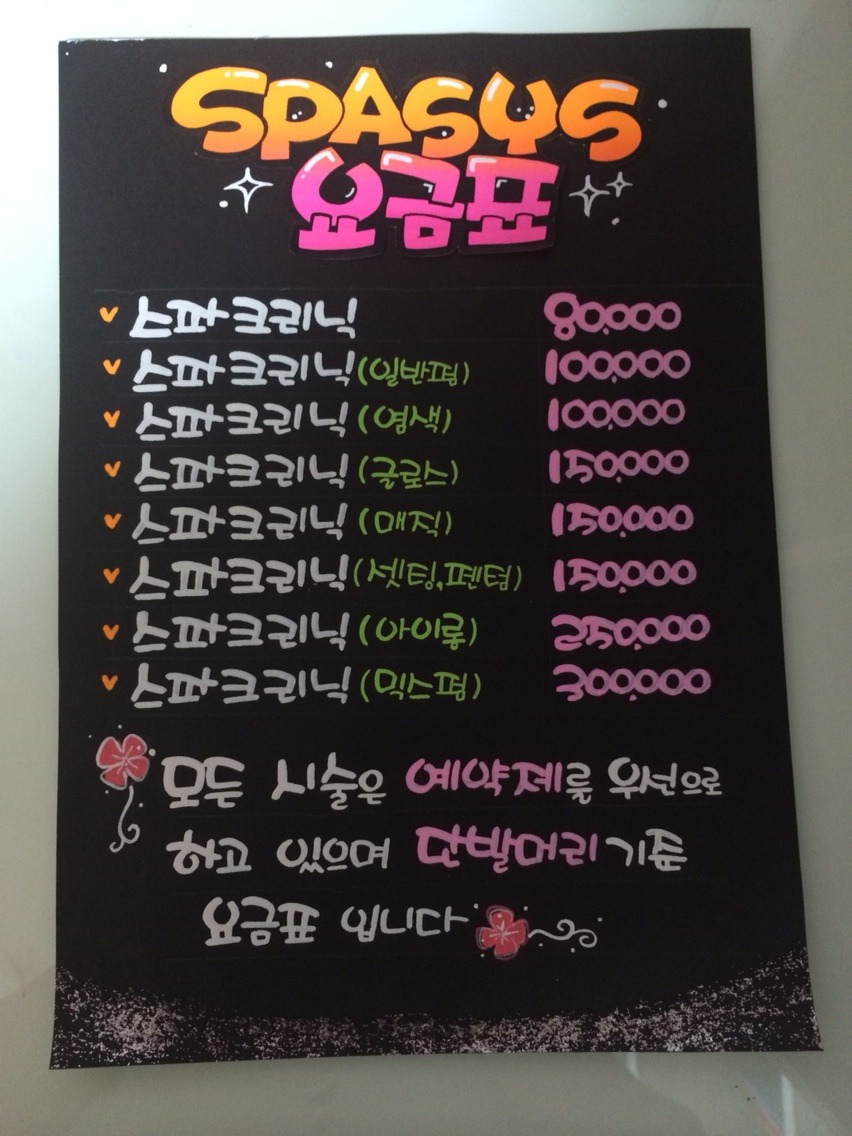 SPASYS
요금표
스파크리닉 80,000
스파크리닉 (일반펌) 100,000
스파크리닉 (염색) 100,000
스파크리닉 (글로스) 150,000
스파크리닉 (매직) 150,000
스파크리닉 (셋팅,펜텀) 150,000
스파크리닉 (아이롱) 250,000
스파크리닉 (믹스펌) 300,000
모든 시술은 예약제를 우선으로
하고 있으며 단발머리 기준
요금표 입니다